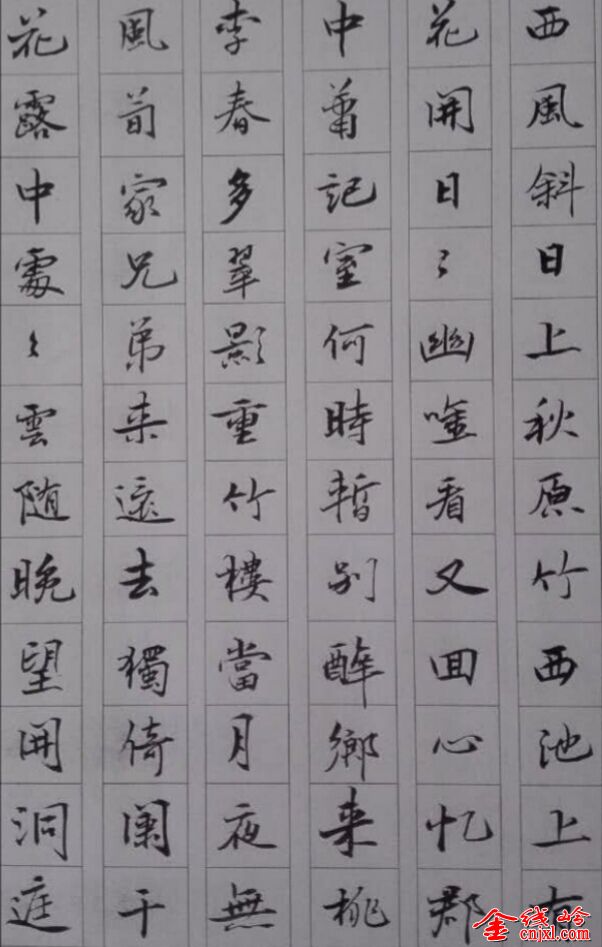 西風斜日上秋原竹西池上有
花開日〻幽唫看又囬心忆郡
中蕭記室何時暫别酔鄉来桃
李春多翠影重竹樓當月夜無
風荀家兄弟来還去獨倚闌干
花露中處〻雲随晚望開洞庭
金线岭
cnjxl.com